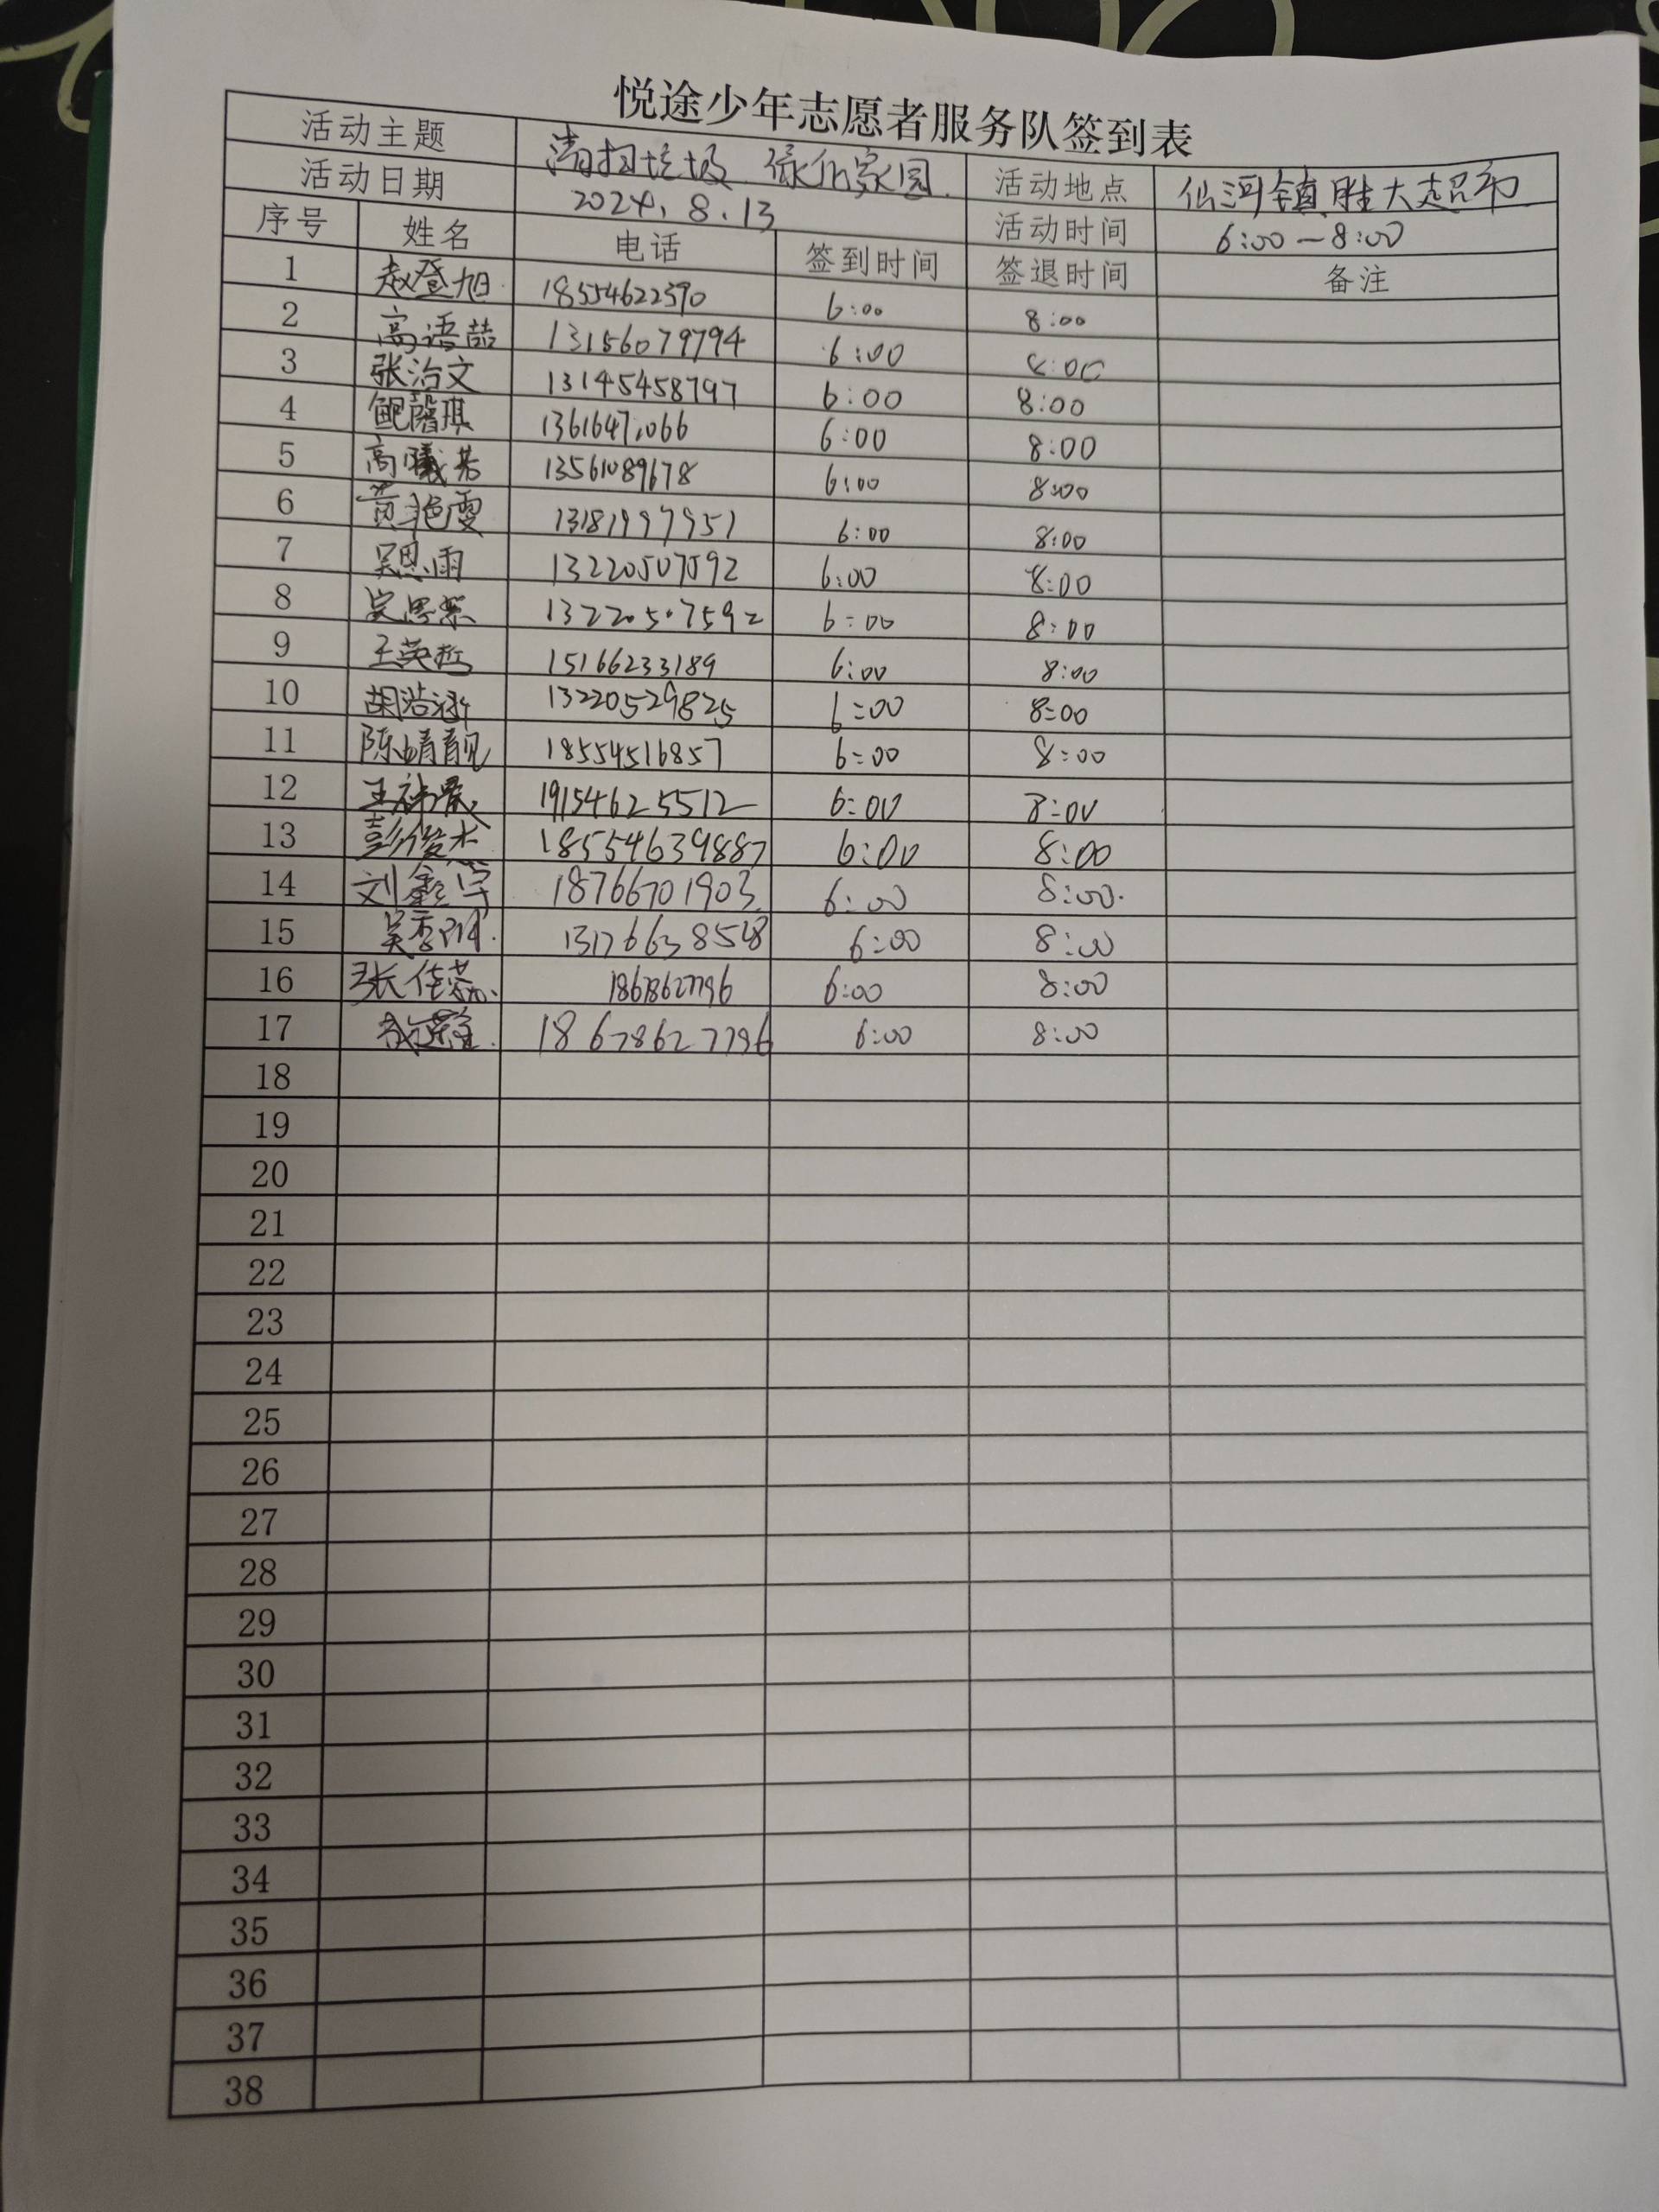 悦途少年志愿者服务队签到表
活动主题 清扫垃圾 绿化家园 活动地点 仙河镇胜大超市
活动日期 2024.8.13 活动时间 6:00-8:00
序号 姓名 电话 签到时间 签退时间 备注
1 赵登旭 18554622390 6:00 8:00
2 高语喆 13156079794 6:00 8:00
3 张治文 13145458797 6:00 8:00
4 鲍馨琪 6:00 8:00
5 高曦若 13561089678 6:00 8:00
6 黄艳雯 13181997951 6:00 8:00
7 吴思雨 13220507592 6:00 8:00
8 13220507592 6:00 8:00
9 王英哲 15166233189 6:00 8:00
10 胡浩涵 13220529825 6:00 8:00
11 陈婧靓 18554516857 6:00 8:00
12 王 19154625512 6:00 8:00
13 彭俊杰 18554639887 6:00 8:00
14 刘鑫宇 18766701903 6:00 8:00
15 吴 6:00 8:00
16 张佳 18678627796 6:00 8:00
17 18678627796 6:00 8:00
18
19
20
21
22
23
24
25
26
27
28
29
30
31
32
33
34
35
36
37
38